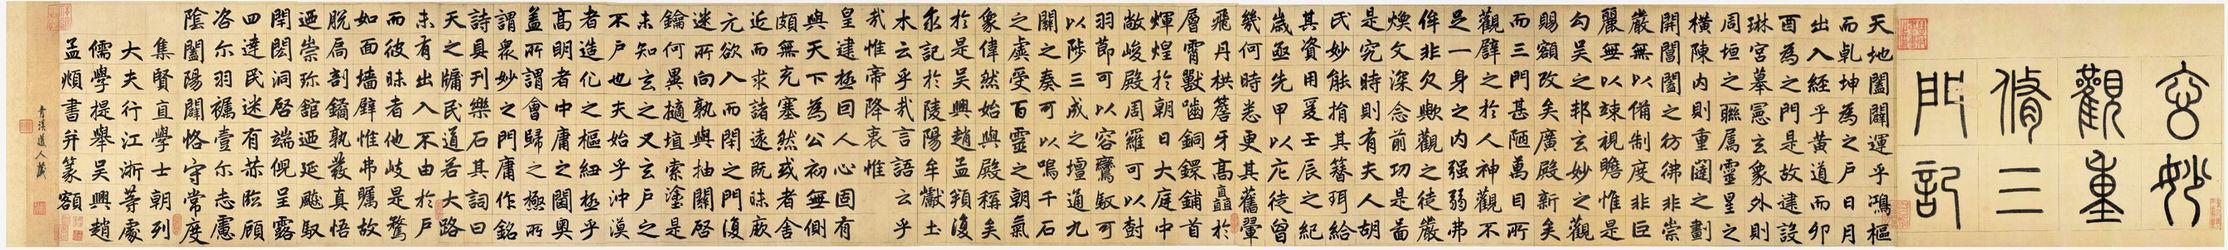 玄妙
觀重
脩三
門記
天地闔闢運乎鴻樞
而乹坤為之户日月
出入經乎黃道而卯
酉為之門是故建設
琳宮摹憲玄象外則
周垣之聯屬靈星之
橫陳內則重闥之劃
開閶闔之彷彿非崇
嚴無以備制度非巨
麗無以竦視瞻惟是
勾吳之邦玄妙之觀
賜額改矣廣殿新矣
而三門甚陋萬目所
觀辟之於人神觀不
足一身之內强弱弗
侔非欠歟觀之徒嚴
煥文深念前功是啚
是究時則有夫人胡
氏妙能捐其簪珥給
其資用爰壬辰之紀
歲亟先甲以庀徒曾
幾何時悉更其舊翬
飛丹栱簷牙高矗於
層霄獸嚙銅鐶鋪首
輝煌於朝日大庭中
敞峻殿周羅可以樹
羽節可以容鸞馭可
以陟三成之壇通九
關之奏可以鳴千石
之虡受百靈之朝氣
象偉然始與殿稱矣
於是吳興趙孟頫復
求記於陵陽牟巘土
木云乎哉言語云乎
哉惟帝降衷惟
皇建極囙人心固有
與天下為公初無側
頗無充塞然或者舍
近而求諸遠既昧厥
元欲入而閉之門復
迷所向孰與抽關啓
鑰何異擿埴索塗是
未知玄之又玄户之
不户也夫始乎沖漠
者造化之樞紐極乎
高明者中庸之閫奧
蓋所謂會歸之極所
謂衆妙之門庸作銘
詩具刊樂石其詞曰
天之牖民道若大路
未有出入不由於户
而彼昧者他岐是騖
如面墻壁惟弗矚故
脫扃剖鐍孰發真悟
迺崇珎館迺延飈馭
閈閎洞啓端倪呈露
四達民迷有恭臨顧
咨尔羽襦壹尔志慮
陰闔陽闢恪守常度
集賢直學士朝列
大夫行江浙等處
儒學提舉吳興趙
孟頫書并篆額
青溪道人藏